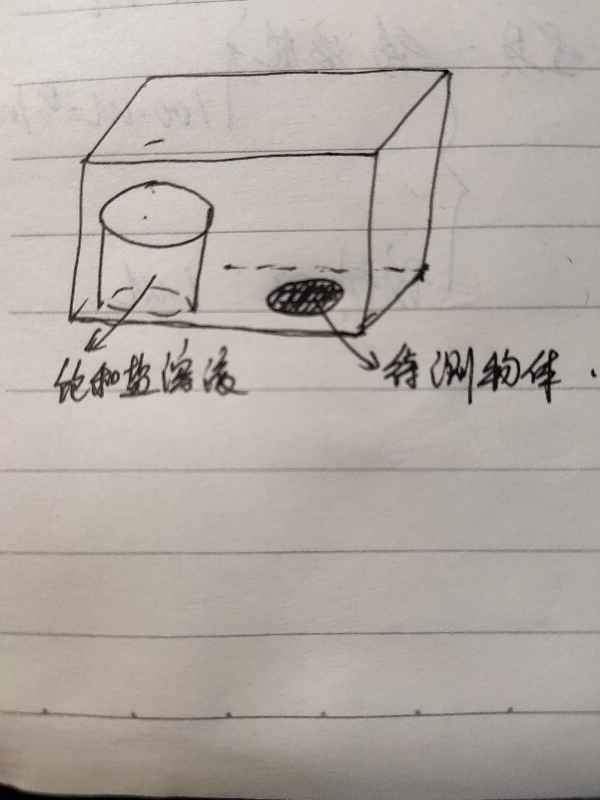 饱和盐溶液
待测物体.